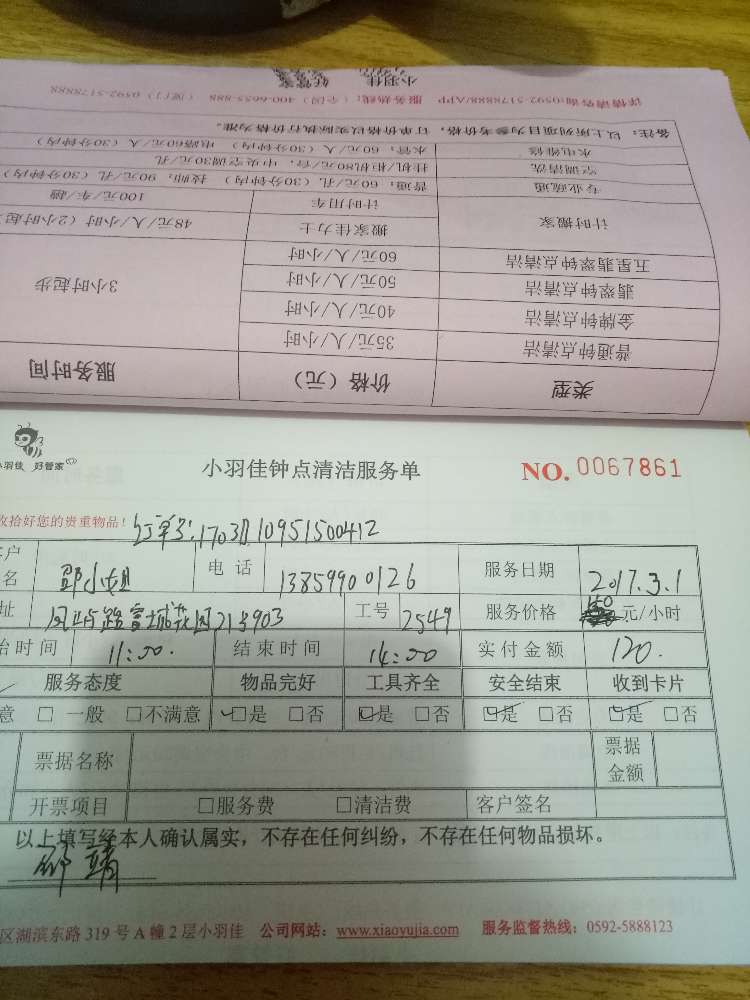 小羽佳 好管家
详情请咨询:0592-5178888/APP 服务热线:(全国)400-6655-888 (厦门)0592-5178888
类型 价格(元) 服务时间
普通钟点清洁 35元/人/小时 3小时起步
金牌钟点清洁 40元/人/小时
翡翠钟点清洁 50元/人/小时
五星翡翠钟点清洁 60元/人/小时
计时搬家 搬家佳力士 48元/人/小时(2小时起
计时用车 100元/车/趟
专业疏通 普通:60元/孔(30分钟内) 技师:90元/孔(30分钟内)
空调清洗 挂机/柜机80元/台,中央空调30元/孔
水电维修 水管:60元/人(30分钟内) 电路60元/人(30分钟内)
备注:以上所列项目为参考价格,订单价格以实际执行价格为准。
小羽佳 好管家
小羽佳钟点清洁服务单
NO. 0067861
收拾好您的贵重物品!
订单号:
客户
名 邵小姐 电话 13859900126 服务日期 2017.3.1
址 富城花园21号903 工号 2549 服务价格 元/小时
始时间 11:00. 结束时间 14:00 实付金额 120.
服务态度 物品完好 工具齐全 安全结束 收到卡片
意 □一般 □不满意 ☑是 □否 ☑是 □否 ☑是 □否 ☑是 □否
票据名称 票据金额
开票项目 □服务费 □清洁费 客户签名
以上填写经本人确认属实,不存在任何纠纷,不存在任何物品损坏。
邵靖
区湖滨东路319号A幢2层小羽佳 公司网站:www.xiaoyujia.com 服务监督热线:0592-5888123